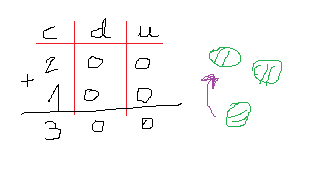 c d u
2 0 0
+
1 0 0
3 0 0